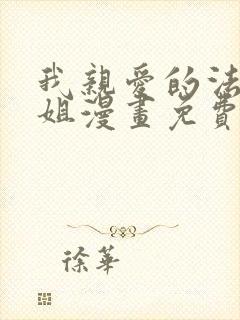 我親愛的法
姐漫畫免費
徐華